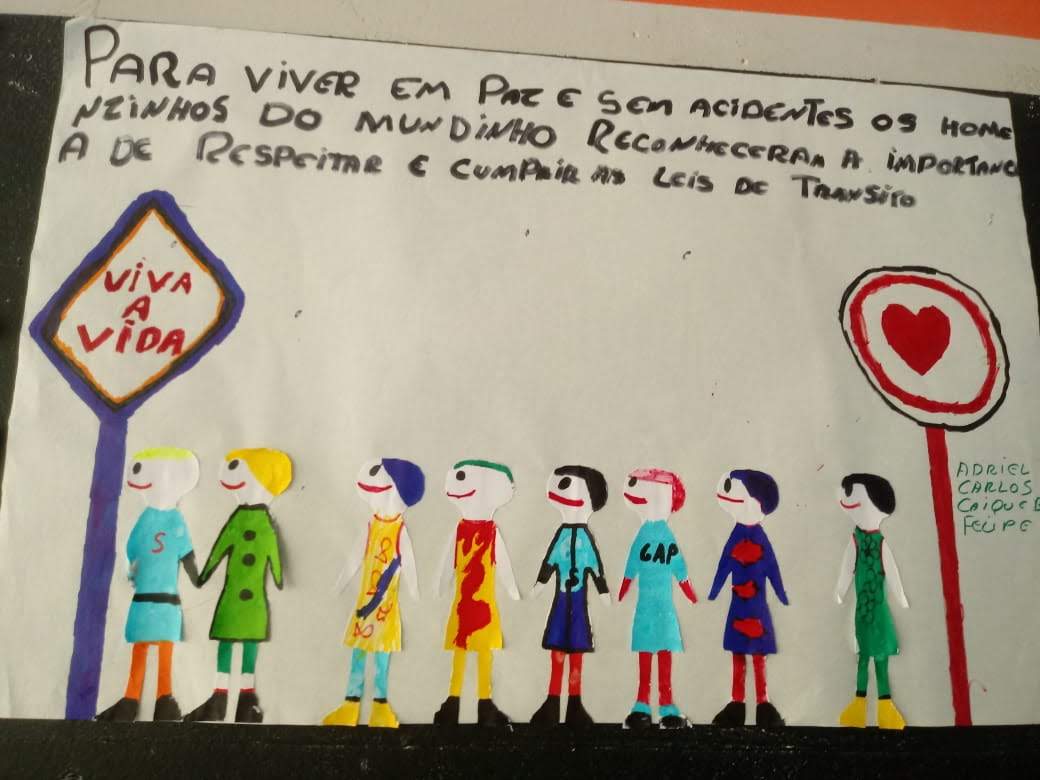 PARA VIVER EM PAZ E SEM ACIDENTES OS HOME
NZINHOS DO MUNDINHO RECONHECERAM A IMPORTANC
A DE RESPEITAR E CUMPRIR AS LEIS DE TRANSITO
VIVA
A
VIDA
ADRIEL
CARLOS
CAIQUE
FELIPE
S
S
GAP